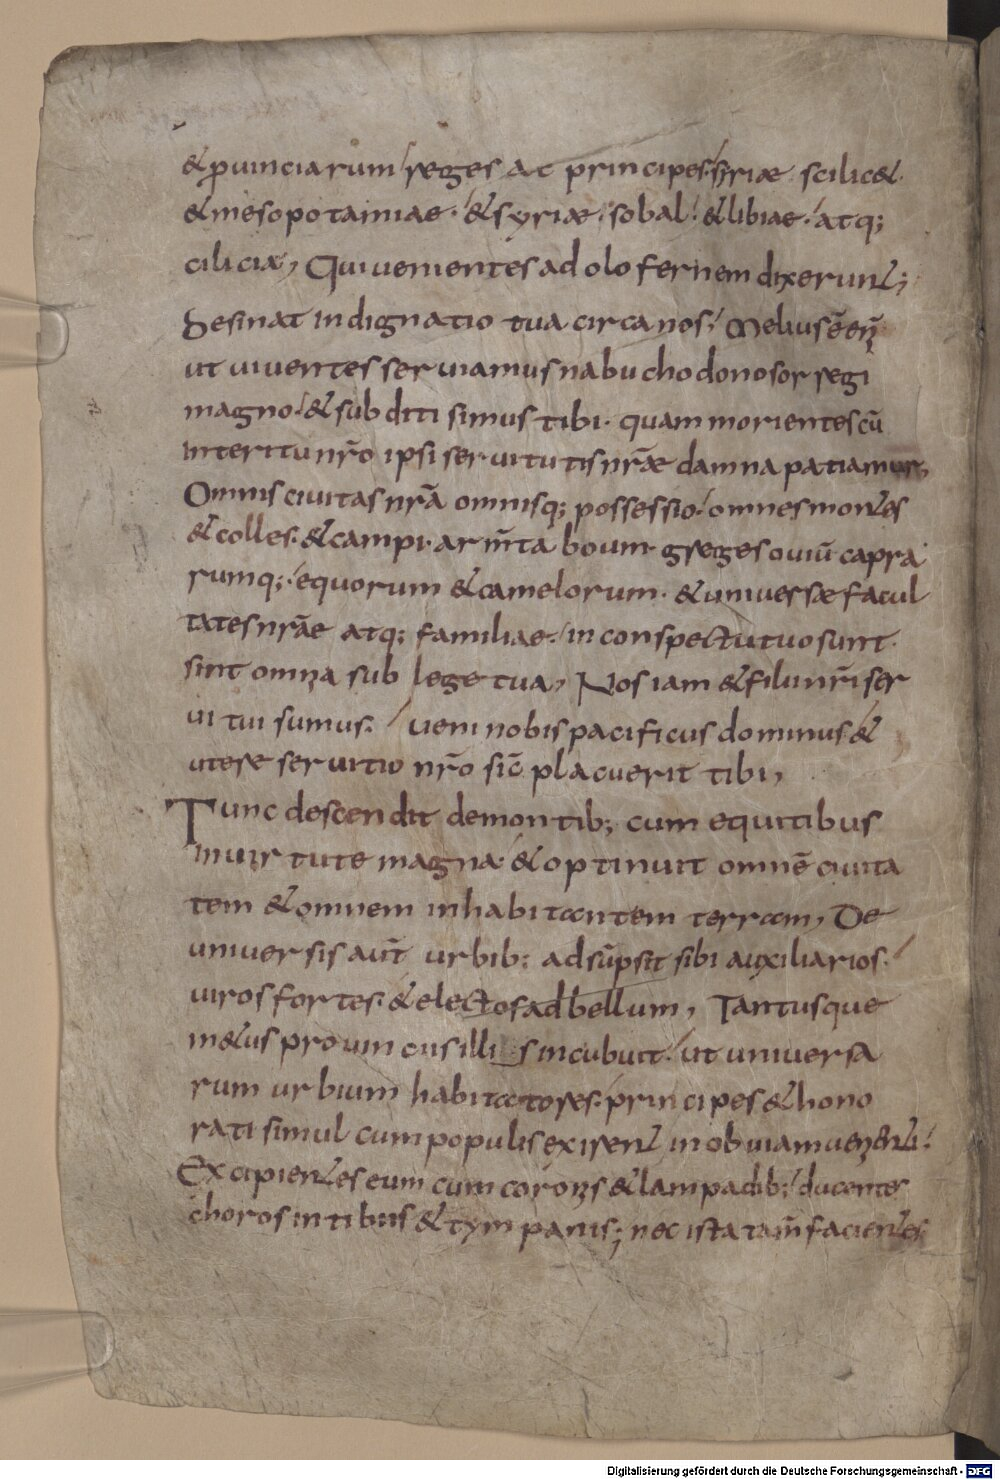 & ꝓuinciarum reges ac principes. syriæ scilic&.
& mesopotamiae. & syriæ. sobal. & libiae. atq;
ciliciæ, Qui uenientes ad olofernem dixerunt;
Desinat indignatio tua circa nos. Melius ē eni̅
ut uiuentes seruiamus nabuchodonosor regi
magno. & subditi simus tibi. quam morientes cū
interitu nr̄o ipsi seruitutis nr̄æ damna patiamur;
Omnis ciuitas nr̄a omnisq; possessio. omnes montes
& colles. & campi. arm̄ta boum. greges ouiū capra
rumq;. equorum & camelorum. & uniuersæ facul
tates nr̄ae atq; familiae. in conspectu tuo sunt.
sint omnia sub lege tua, Nos iam & filii nr̄i ser
ui tui sumus. ueni nobis pacificus dominus &
utere seruitio nr̄o sic̄ placuerit tibi,
Tunc descendit de montib; cum equitibus
in uirtute magna. & optinuit omnē ciuita
tem & omnem inhabitantem terram, De
uniuersis aut̄ urbib; adsūpsit sibi auxiliarios.
uiros fortes. & electos ad bellum, Tantusque
m&us prouinciis illis incubuit. ut uniuersa
rum urbium habitatores. principes & hono
rati simul cum populis exirent in obuiam uenienti.
Excipientes eum cum coronis & lampadib; ducentes
choros in tibiis & tympanis; nec ista tam̄ facientes
Digitalisierung gefördert durch die Deutsche Forschungsgemeinschaft - DFG